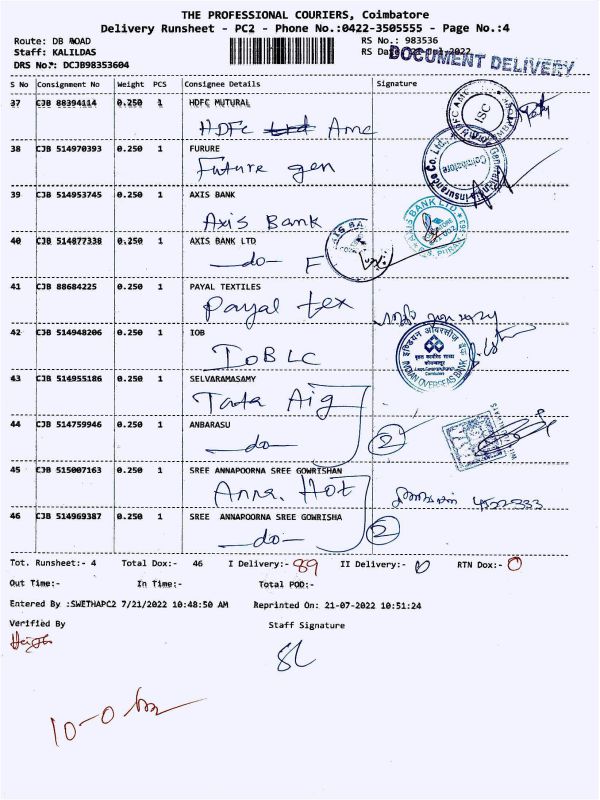 THE PROFESSIONAL COURIERS, Coimbatore
Delivery Runsheet - PC2 - Phone No.:0422-3505555 - Page No.:4
Route: DB ROAD
RS No.: 983536
Staff: KALILDAS
RS Date: 21-Jul-2022
DOCUMENT DELIVERY
DRS No.: DCJB98353604
S No Consignment No Weight PCS Consignee Details Signature
37 CJB 88394114 0.250 1 HDFC MUTURAL
HDFC Ltd Amc
ISC
38 CJB 514970393 0.250 1 FURURE
Future gen
Insurance Co. Ltd.
Coimbatore
39 CJB 514953745 0.250 1 AXIS BANK
Axis Bank
AXIS BANK LTD
40 CJB 514877338 0.250 1 AXIS BANK LTD
-do- F
41 CJB 88684225 0.250 1 PAYAL TEXTILES
Payal tex
42 CJB 514948206 0.250 1 IOB
IOB LC
INDIAN OVERSEAS BANK
43 CJB 514955186 0.250 1 SELVARAMASAMY
Tata Aig
44 CJB 514759946 0.250 1 ANBARASU
-do- 2
45 CJB 515007163 0.250 1 SREE ANNAPOORNA SREE GOWRISHAN
Anna. Hot
46 CJB 514969387 0.250 1 SREE ANNAPOORNA SREE GOWRISHA
-do- 2
Tot. Runsheet:- 4 Total Dox:- 46 I Delivery:- 89 II Delivery:- 0 RTN Dox:- 0
Out Time:- In Time:- Total POD:-
Entered By :SWETHAPC2 7/21/2022 10:48:50 AM Reprinted On: 21-07-2022 10:51:24
Verified By Staff Signature